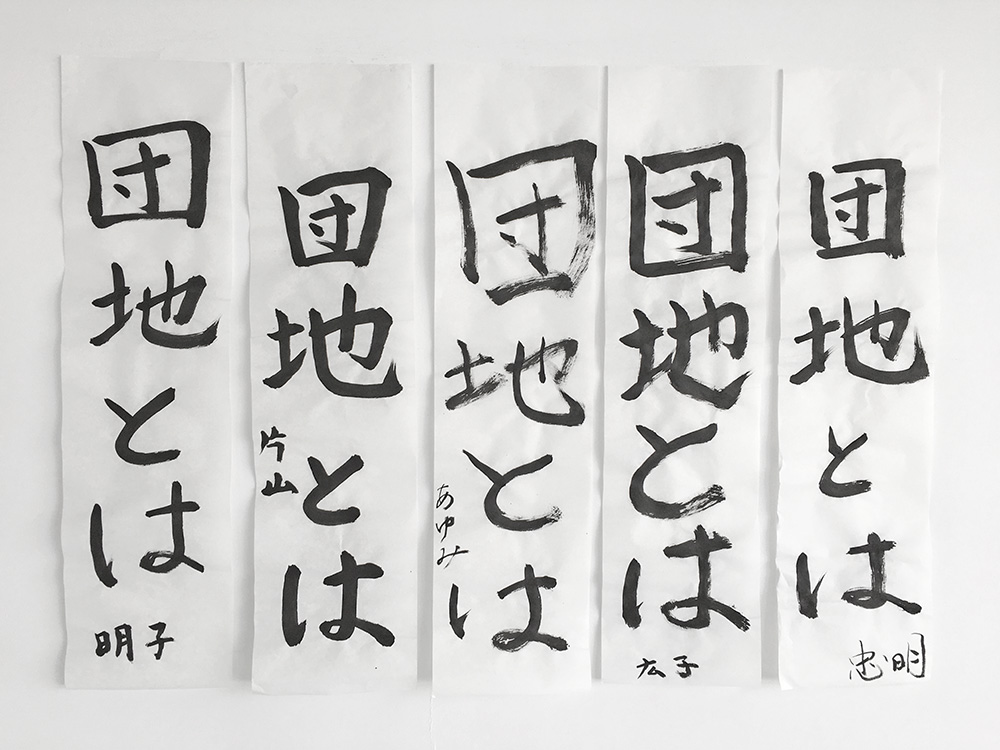 団地とは
明子
団地とは
片山
団地とは
あゆみ
団地とは
広子
団地とは
忠明